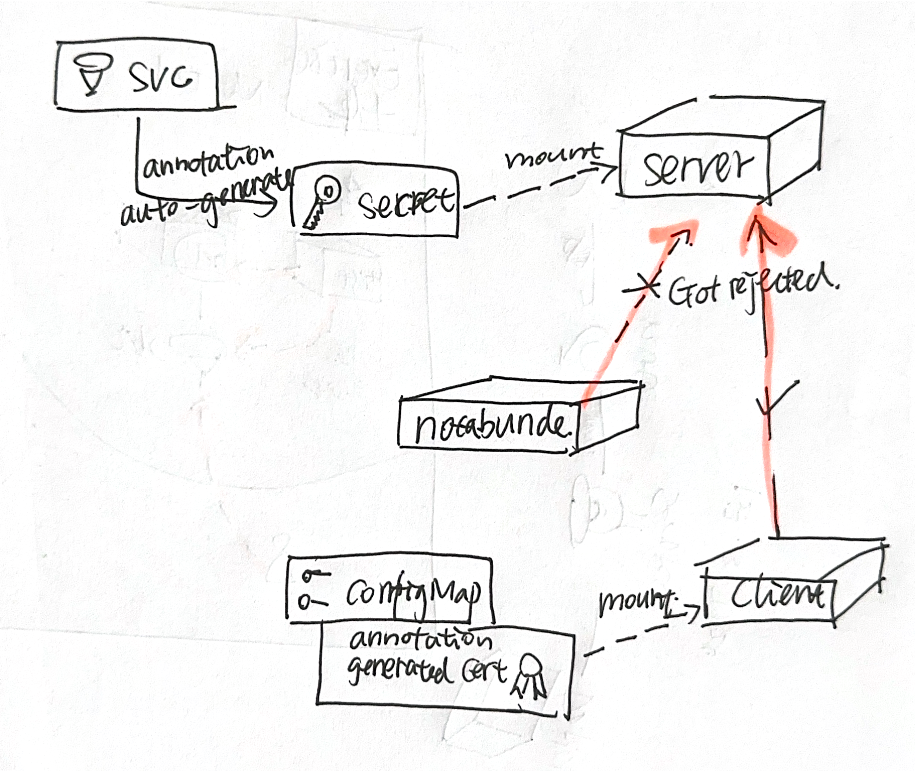 SVC
annotation
auto-generate
secret
mount
server
Got rejected.
notabunde.
ConfigMap
annotation
generated cert
mount.
Client